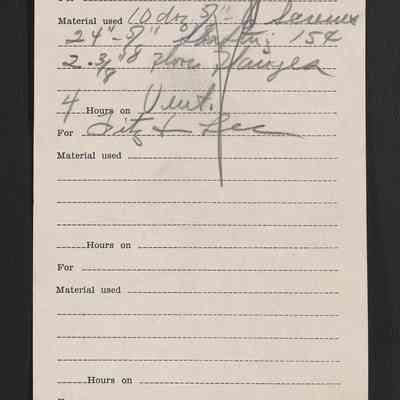 Material used 10 doz 5/8"- Screws
24"-5/8" Shafting 15¢
2-3/8" Floor Flanges
4 Hours on Vent.
For Fitz & Lee
Material used
Hours on
For
Material used
Hours on